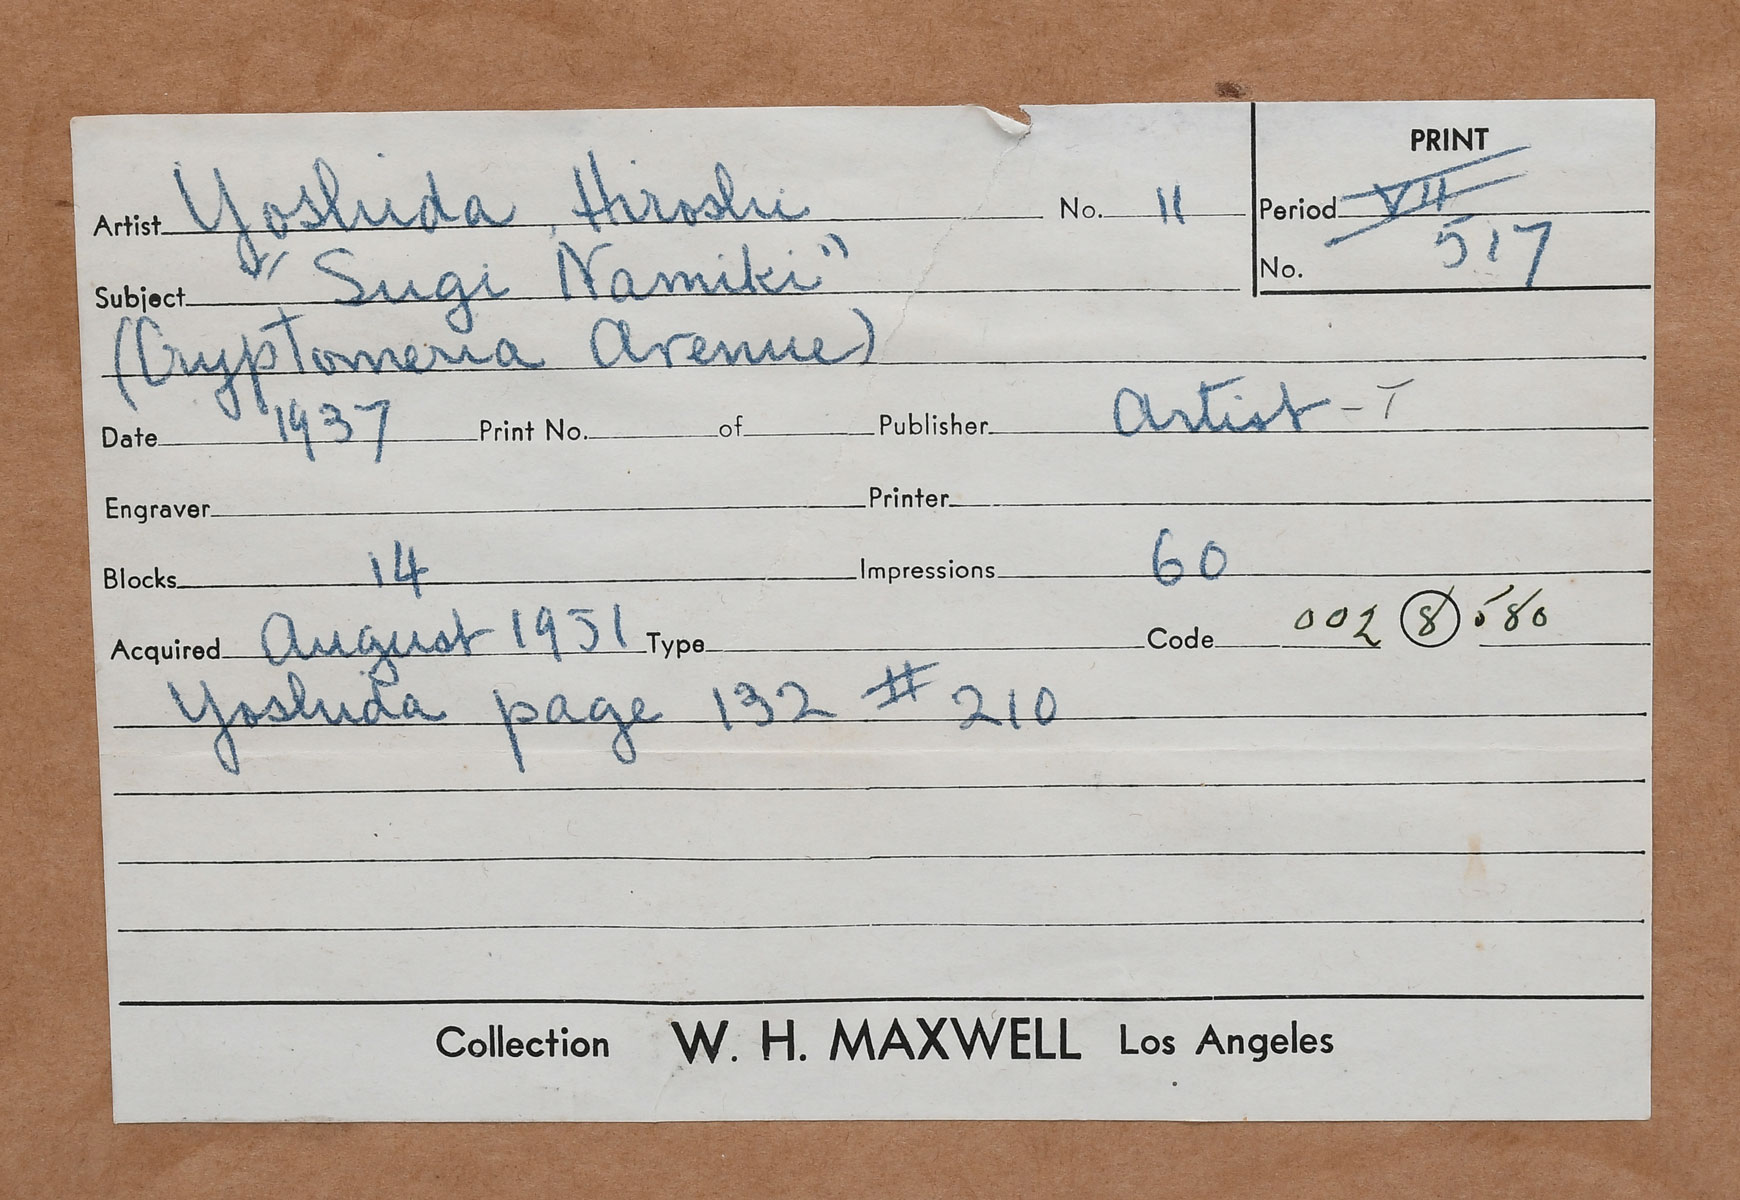 PRINT
Artist Yoshida, Hiroshi No. 11 Period VII
Subject "Sugi Namiki" No. 517
(Cryptomeria Avenue)
Date 1937 Print No. of Publisher Artist - T
Engraver Printer
Blocks 14 Impressions 60
Acquired August 1951 Type Code 002 8 580
Yoshida page 132 # 210
Collection W. H. MAXWELL Los Angeles